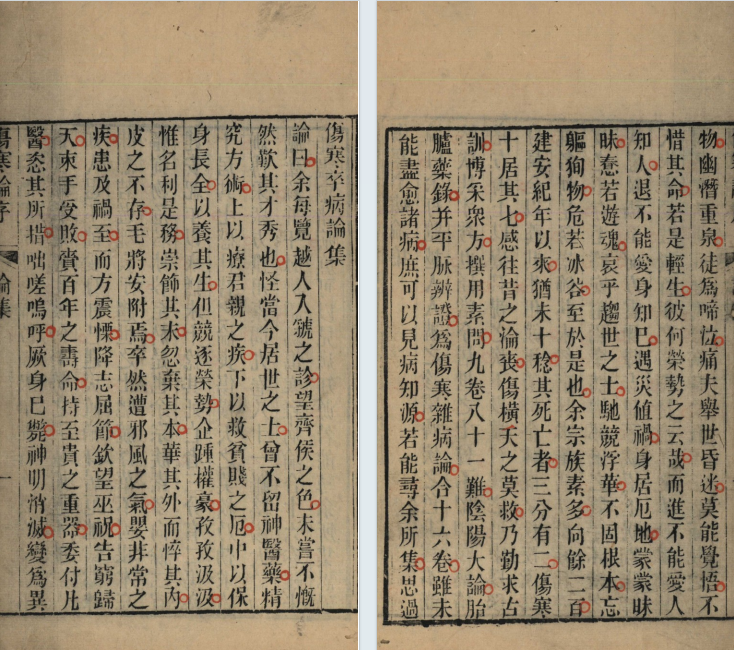 傷寒卒病論集
論曰余每覽越人入虢之診望齊侯之色未嘗不慨
然歎其才秀也怪當今居世之士曾不留神醫藥精
究方術上以療君親之疾下以救貧賤之厄中以保
身長全以養其生但競逐榮勢企踵權豪孜孜汲汲
惟名利是務崇飾其末忽棄其本華其外而悴其內
皮之不存毛將安附焉卒然遭邪風之氣嬰非常之
疾患及禍至而方震慄降志屈節欽望巫祝告窮歸
天束手受敗賫百年之壽命持至貴之重器委付凡
醫恣其所措咄嗟嗚呼厥身已斃神明消滅變爲異
傷寒論序 論集 一
物幽潛重泉徒爲啼泣痛夫舉世昏迷莫能覺悟不
惜其命若是輕生彼何榮勢之云哉而進不能愛人
知人退不能愛身知己遇災值禍身居厄地蒙蒙昧
昧惷若遊魂哀乎趨世之士馳競浮華不固根本忘
軀狥物危若冰谷至於是也余宗族素多向餘二百
建安紀年以來猶未十稔其死亡者三分有二傷寒
十居其七感往昔之淪喪傷橫夭之莫救乃勤求古
訓博采衆方撰用素問九卷八十一難陰陽大論胎
臚藥錄并平脉辨證爲傷寒雜病論合十六卷雖未
能盡愈諸病庶可以見病知源若能尋余所集思過